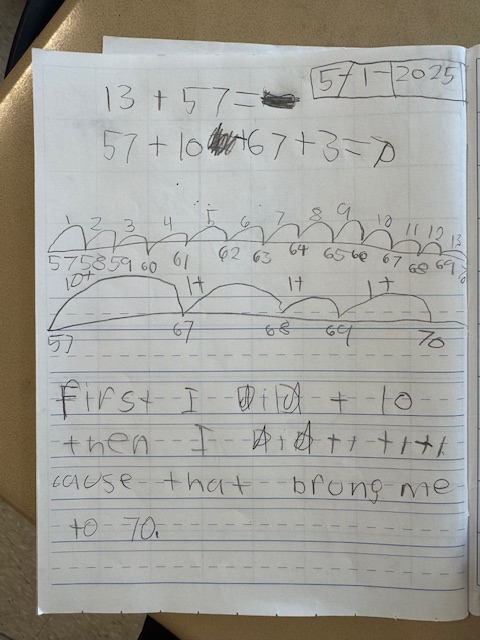 5-1-2025
13 + 57 =
57 + 10 +67 + 3 = 70
1 2 3 4 5 6 7 8 9 10 11 12 13
57 58 59 60 61 62 63 64 65 66 67 68 69 70
10+ 1+ 1+ 1+
57 67 68 69 70
First I did + 10
then I did +1 +1 +1
cause that brung me
to 70.